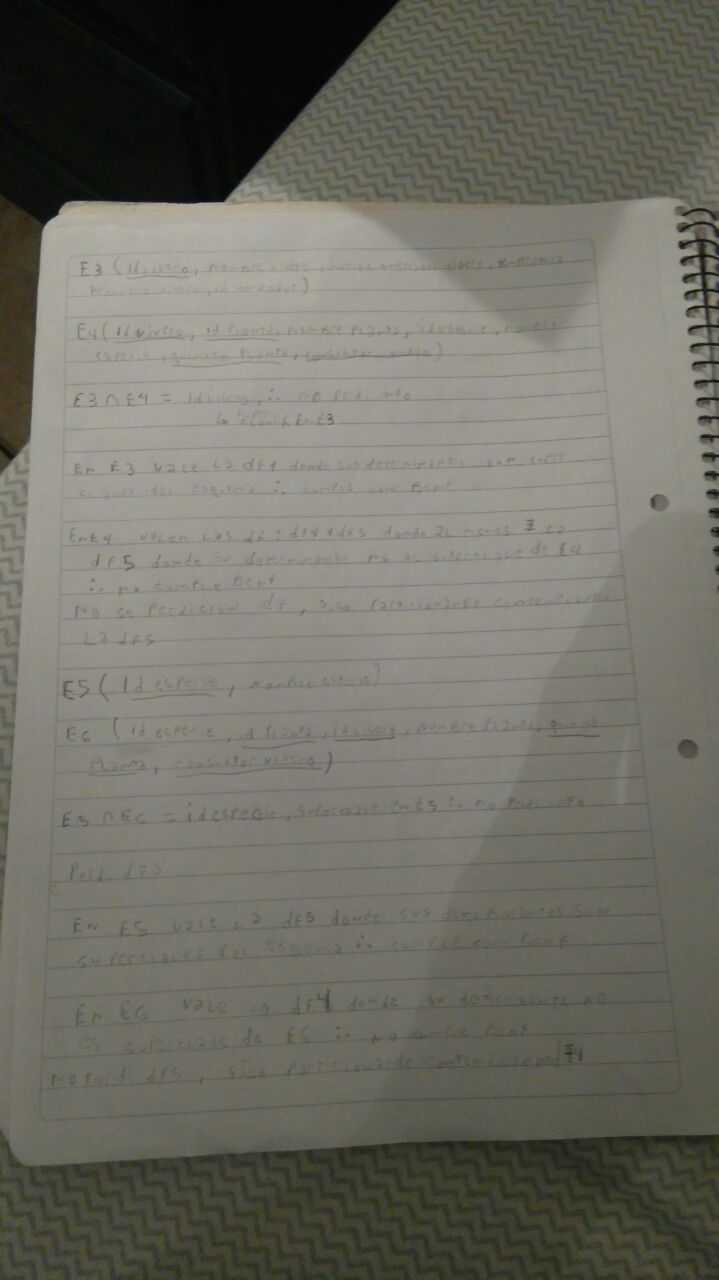 E3 (Id vivero, nombre vivero, metros superficie vivero,
vivero, id cuidador)
E4 (Id vivero, id Planta, nombre Planta, id especie, nombre
especie, quimico Planta, consultor vivero)
E3 ∩ E4 = Id vivero, ∴ no Perdi info
↳ superclave En E3
En E3 vale La df1 donde sus determinantes son super
claves del esquema ∴ cumple con Bcnf
En E4 valen Las df: df4 y df5 donde al menos ∃ La
df5 donde su determinante no es superclave de E4
∴ no cumple Bcnf
No se Perdieron df, sigo Particionando contemplando
La df5
E5 (Id especie, nombre especie)
E6 (Id especie, id Planta, id vivero, nombre Planta, quimico
Planta, consultor vivero)
E5 ∩ E6 = id especie, superclave En E5 ∴ no Perdi info
En E5 vale La df5 donde sus determinantes son
superclaves del Esquema ∴ cumple con Bcnf
En E6 vale la df4 donde su determinante no
es superclave de E6 ∴ no cumple Bcnf
No Perdi dfs, sigo Particionando contemplando df4